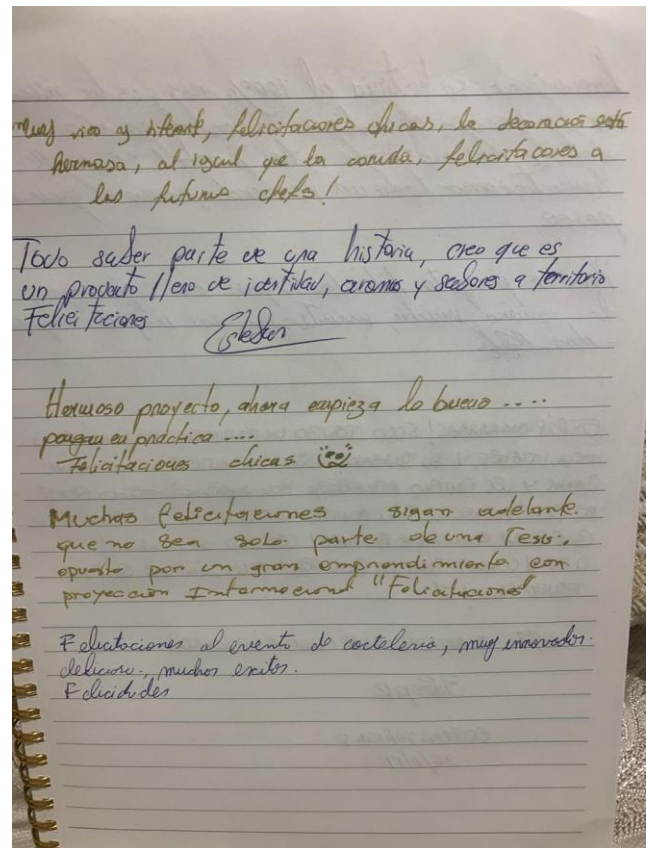 Muy rico y , felicitaciones chicas, la decoración está
hermosa, al igual que la comida, felicitaciones a
las futuras chefs!
Todo sabor parte de una historia, creo que es
un producto lleno de identidad, aromas y sabores a territorio
Felicitaciones Esteban
Hermoso proyecto, ahora empieza lo bueno ....
pongan en práctica ....
Felicitaciones chicas
Muchas felicitaciones sigan adelante.
que no sea solo parte de una Tesis,
apuesto por un gran emprendimiento con
proyección Internacional "Felicitaciones"
Felicitaciones al evento de coctelería, muy innovador.
delicioso, muchos exitos.
Felicidades